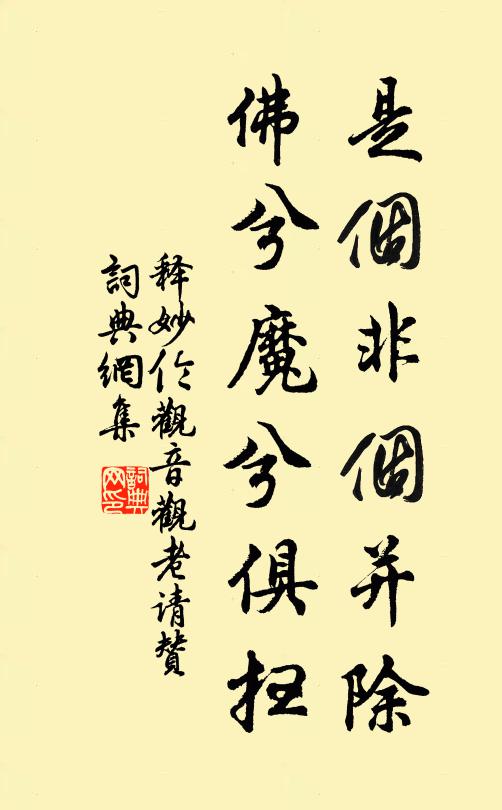 是個非個并除
佛兮魔兮俱扫
释妙伦觀音觀老请贊
詞典網集
詞典网印